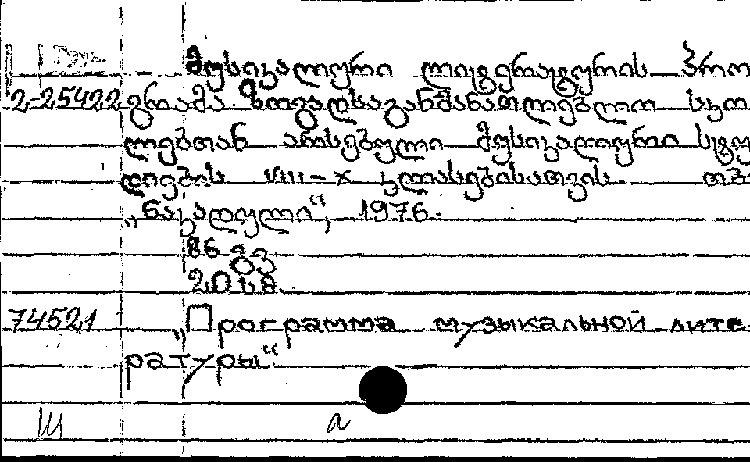 მუსიკალური ლიტერატურის პრო
2-25422 გრამა ზოგადსაგანმანათლებლო სკო
ლებთან არსებული მუსიკალური სტუ
დიების VIII-X კლასებისათვის. თბ.
„ნაკადული“, 1976.
86 გვ
20 სმ.
74521 „Программа музыкальной лите
ратуры“
Ш а